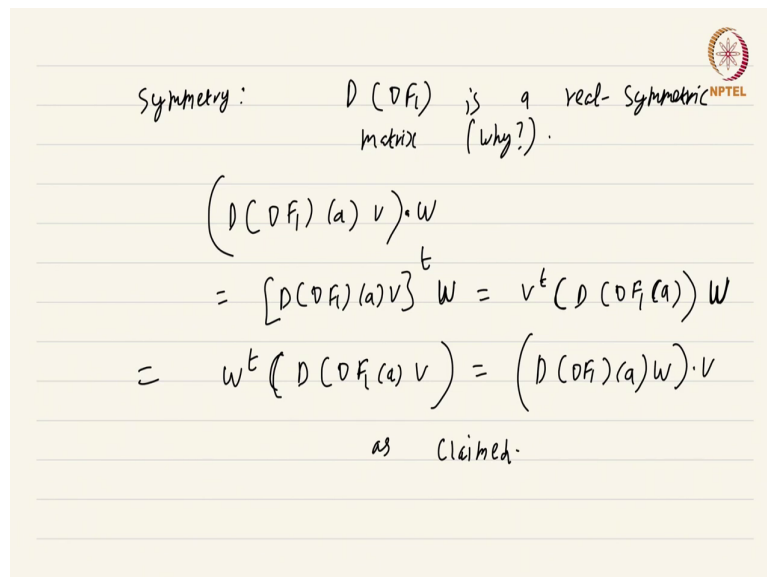 NPTEL
Symmetry: D(DF₁) is a real-symmetric
matrix (why?).
(D(DF₁)(a) v)·w
= [D(DF₁)(a)v}ᵗ w = vᵗ(D(DF₁(a)) w
= wᵗ(D(DF₁(a) v) = (D(DF₁)(a)w)·v
as claimed.